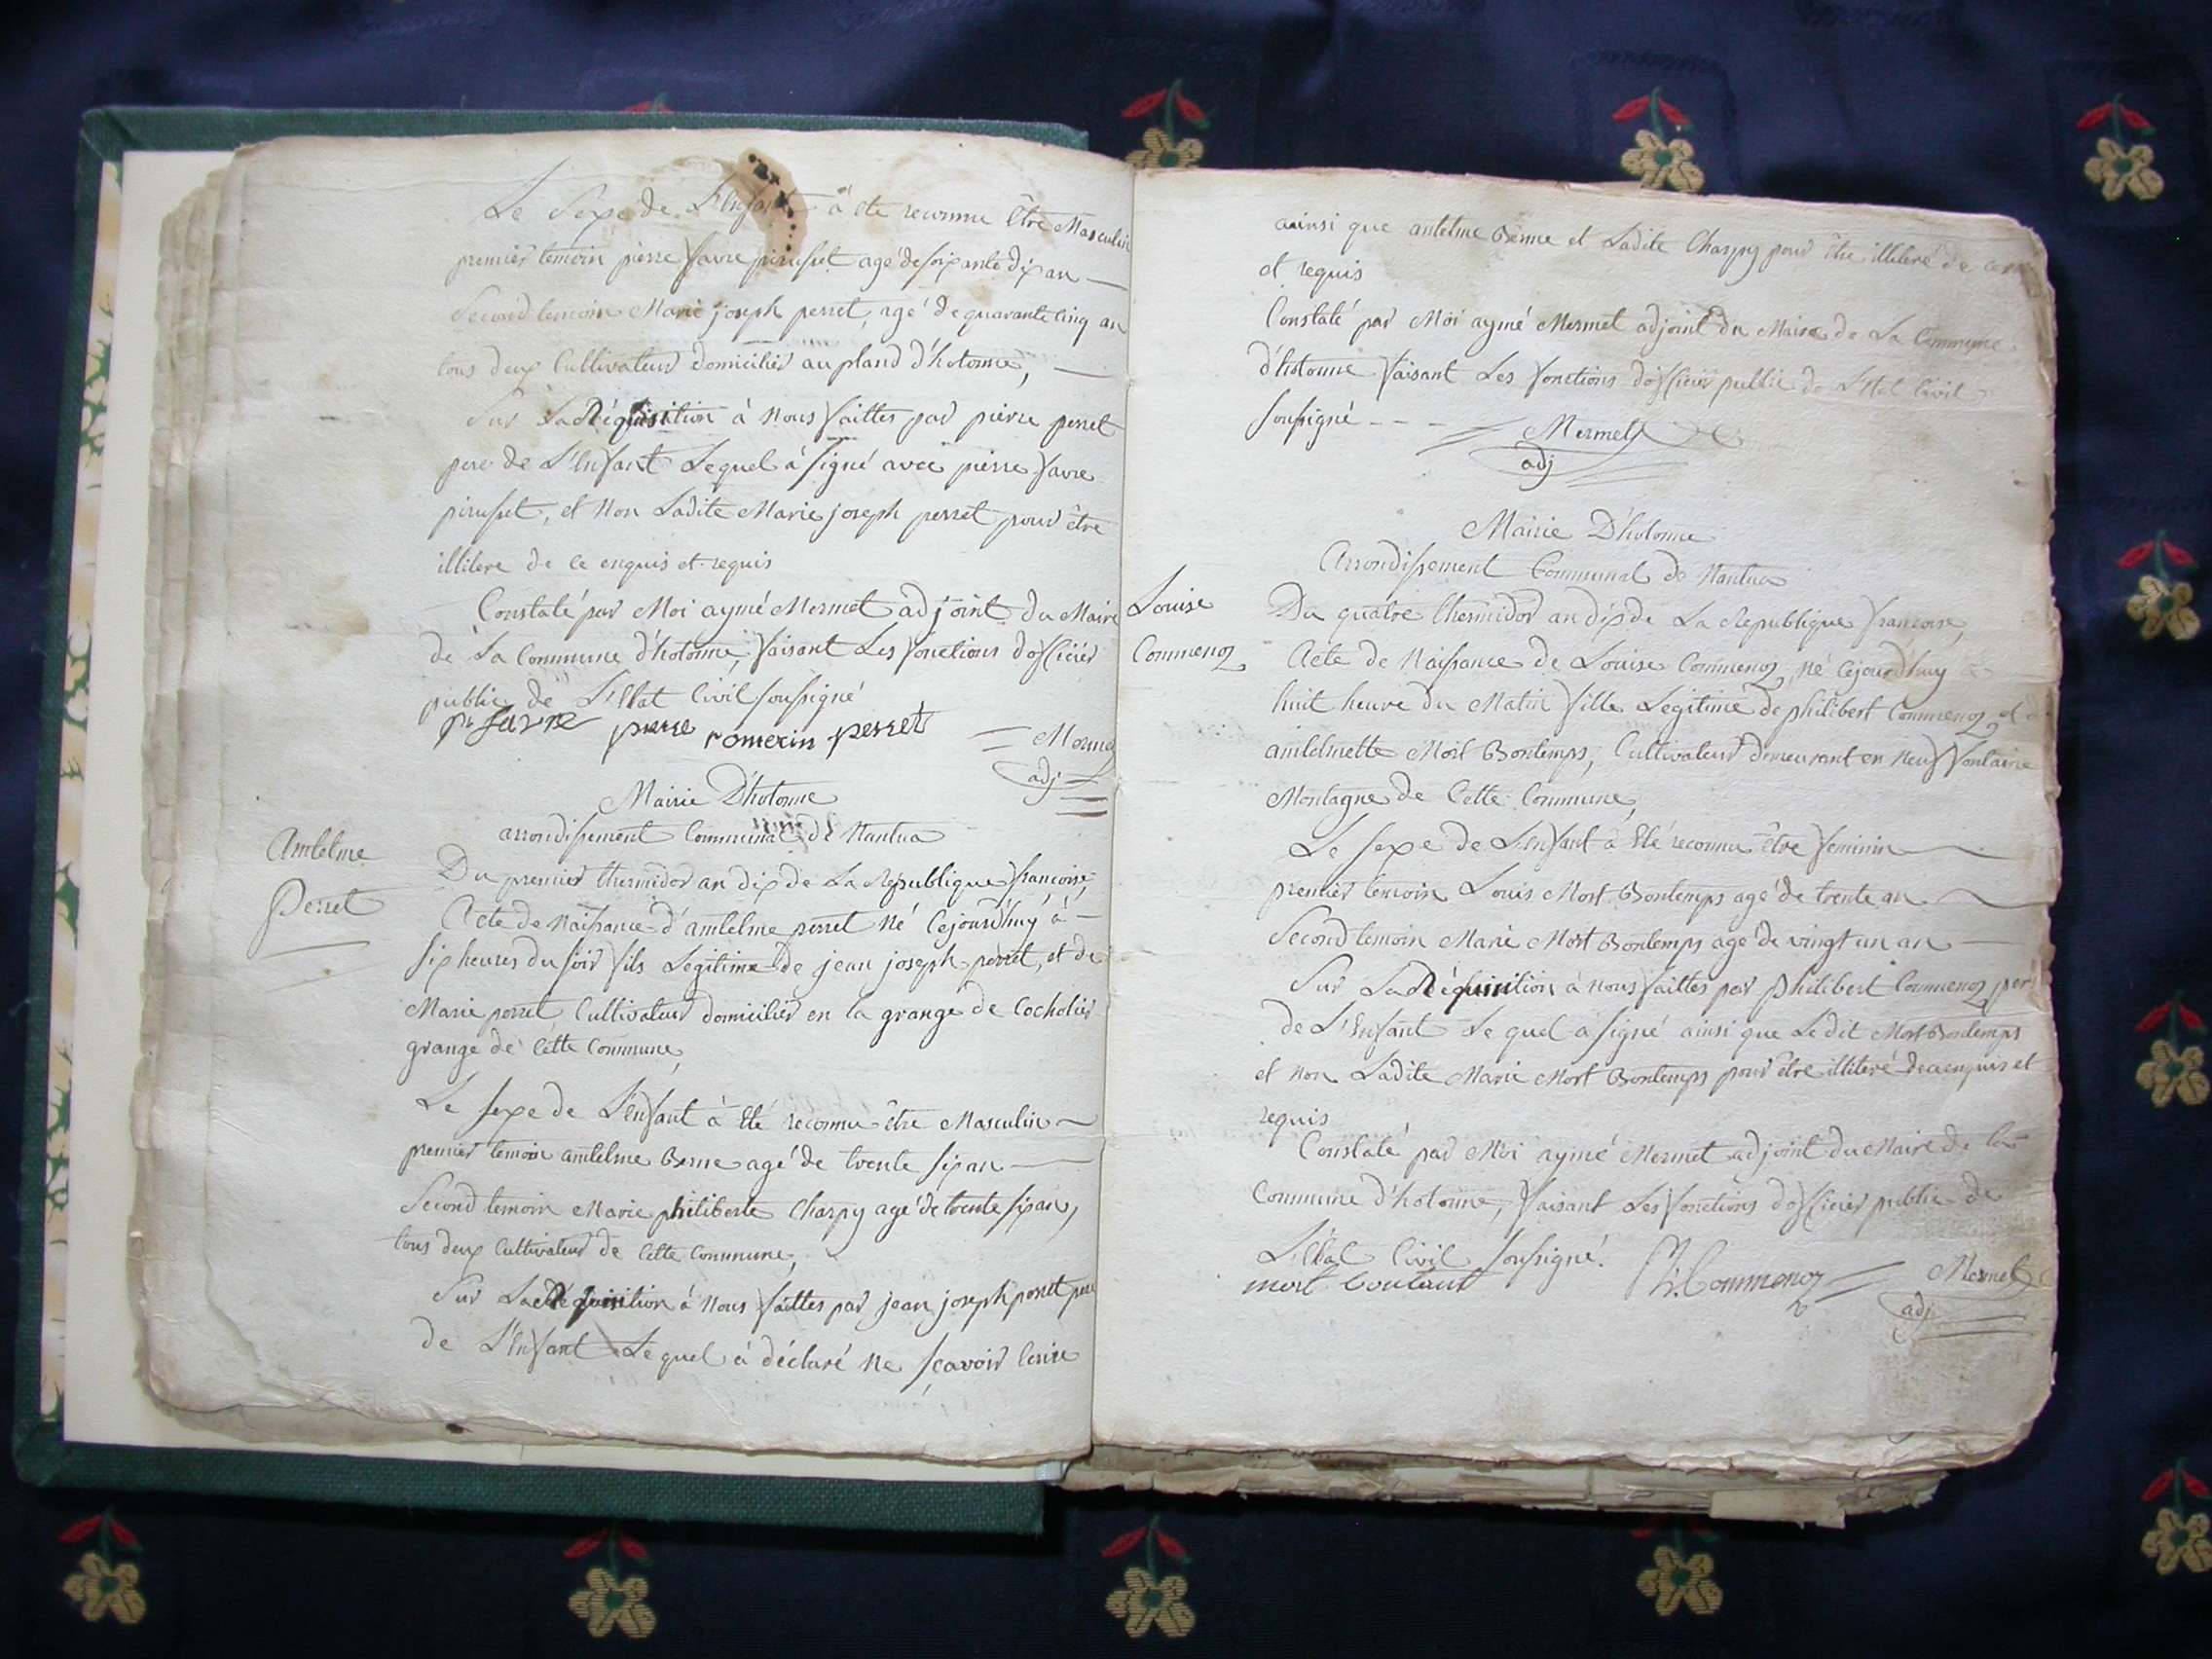 Le Sexe de L'Enfant à eté reconnu Être Masculin
premier temoin pierre favre pirusset agé de soixante dix an
Second temoin Marie joseph perret, agé de quarante cinq an
tous deux Cultivateur domiciliés au pland d'hotonne,
Sur La Réquisition à Nous faittes par pierre perret
pere de L'Enfant Lequel à signé avec pierre favre
pirusset, et Non Ladite Marie joseph perret pour être
illitere de ce enquis et requis
Constaté par Moi aymé Mermet adjoint du Maire
de La Commune d'hotonne, faisant Les fonctions dofficier
public de L'Etat Civil soussigné
pr favre pierre romerin perret Merme
adj
Mairie D'hotonne
arrondissement Communal de Nantua
Amtelme
Perret
Du premier thermidor an dix de La Republique francoise,
Acte de Naissance d'amtelme perret Né Cejourd'huy à
six heures du soir fils Legitime de jean joseph perret, et de
Marie perret Cultivateur domiciliés en la grange de Cocholier
grange de Cette Commune,
Le sexe de L'enfant à Eté reconnu être Masculin
premier temoin amtelme Berne agé de trente six an
Second temoin Marie philiberte Charpy agé de trente six an,
tous deux Cultivateur de Cette Commune,
Sur La Réquisition à Nous faittes par jean joseph perret pere
de L'Enfant Lequel à déclaré Ne sçavoir Ecrire
ainsi que antelme Berne et Ladite Charpy pour être illiteré de ce
et requis
Constaté par Moi aymé Mermet adjoint du Maire de La Commune
d'hotonne faisant Les fonctions dofficier public de L'Etat Civil
soussigné Mermet
adj
Mairie D'hotonne
Arrondissement Communal de Nantua
Louise
Commenoz
Du quatre thermidor an dix de La Republique francoise,
Acte de Naissance de Louise Commenoz, Né Cejourdhuy à
huit heure du Matin fille Legitime de philibert Commenoz et d
amtelmette Mort Bontemps, Cultivateur demeurant en Neuf fontaine
Montagne de Cette Commune,
Le sexe de L'Enfant à Eté reconnu être feminin
premier temoin Louis Mort Bontemps agé de trente an
Second temoin Marie Mort Bontemps agé de vingt un an
Sur La Réquisition à Nous faittes par Philibert Commenoz per
de L'Enfant Le quel à signé ainsi que Le dit Mort Bontemps
et Non Ladite Marie Mort Bontemps pour être illiteré de ce enquis et
requis
Constaté par Moi aymé Mermet adjoint du Maire de la
Commune d'hotonne, faisant Les fonctions dofficier public de
L'Etat Civil soussigné.
mort Commenoz Mermet
adj